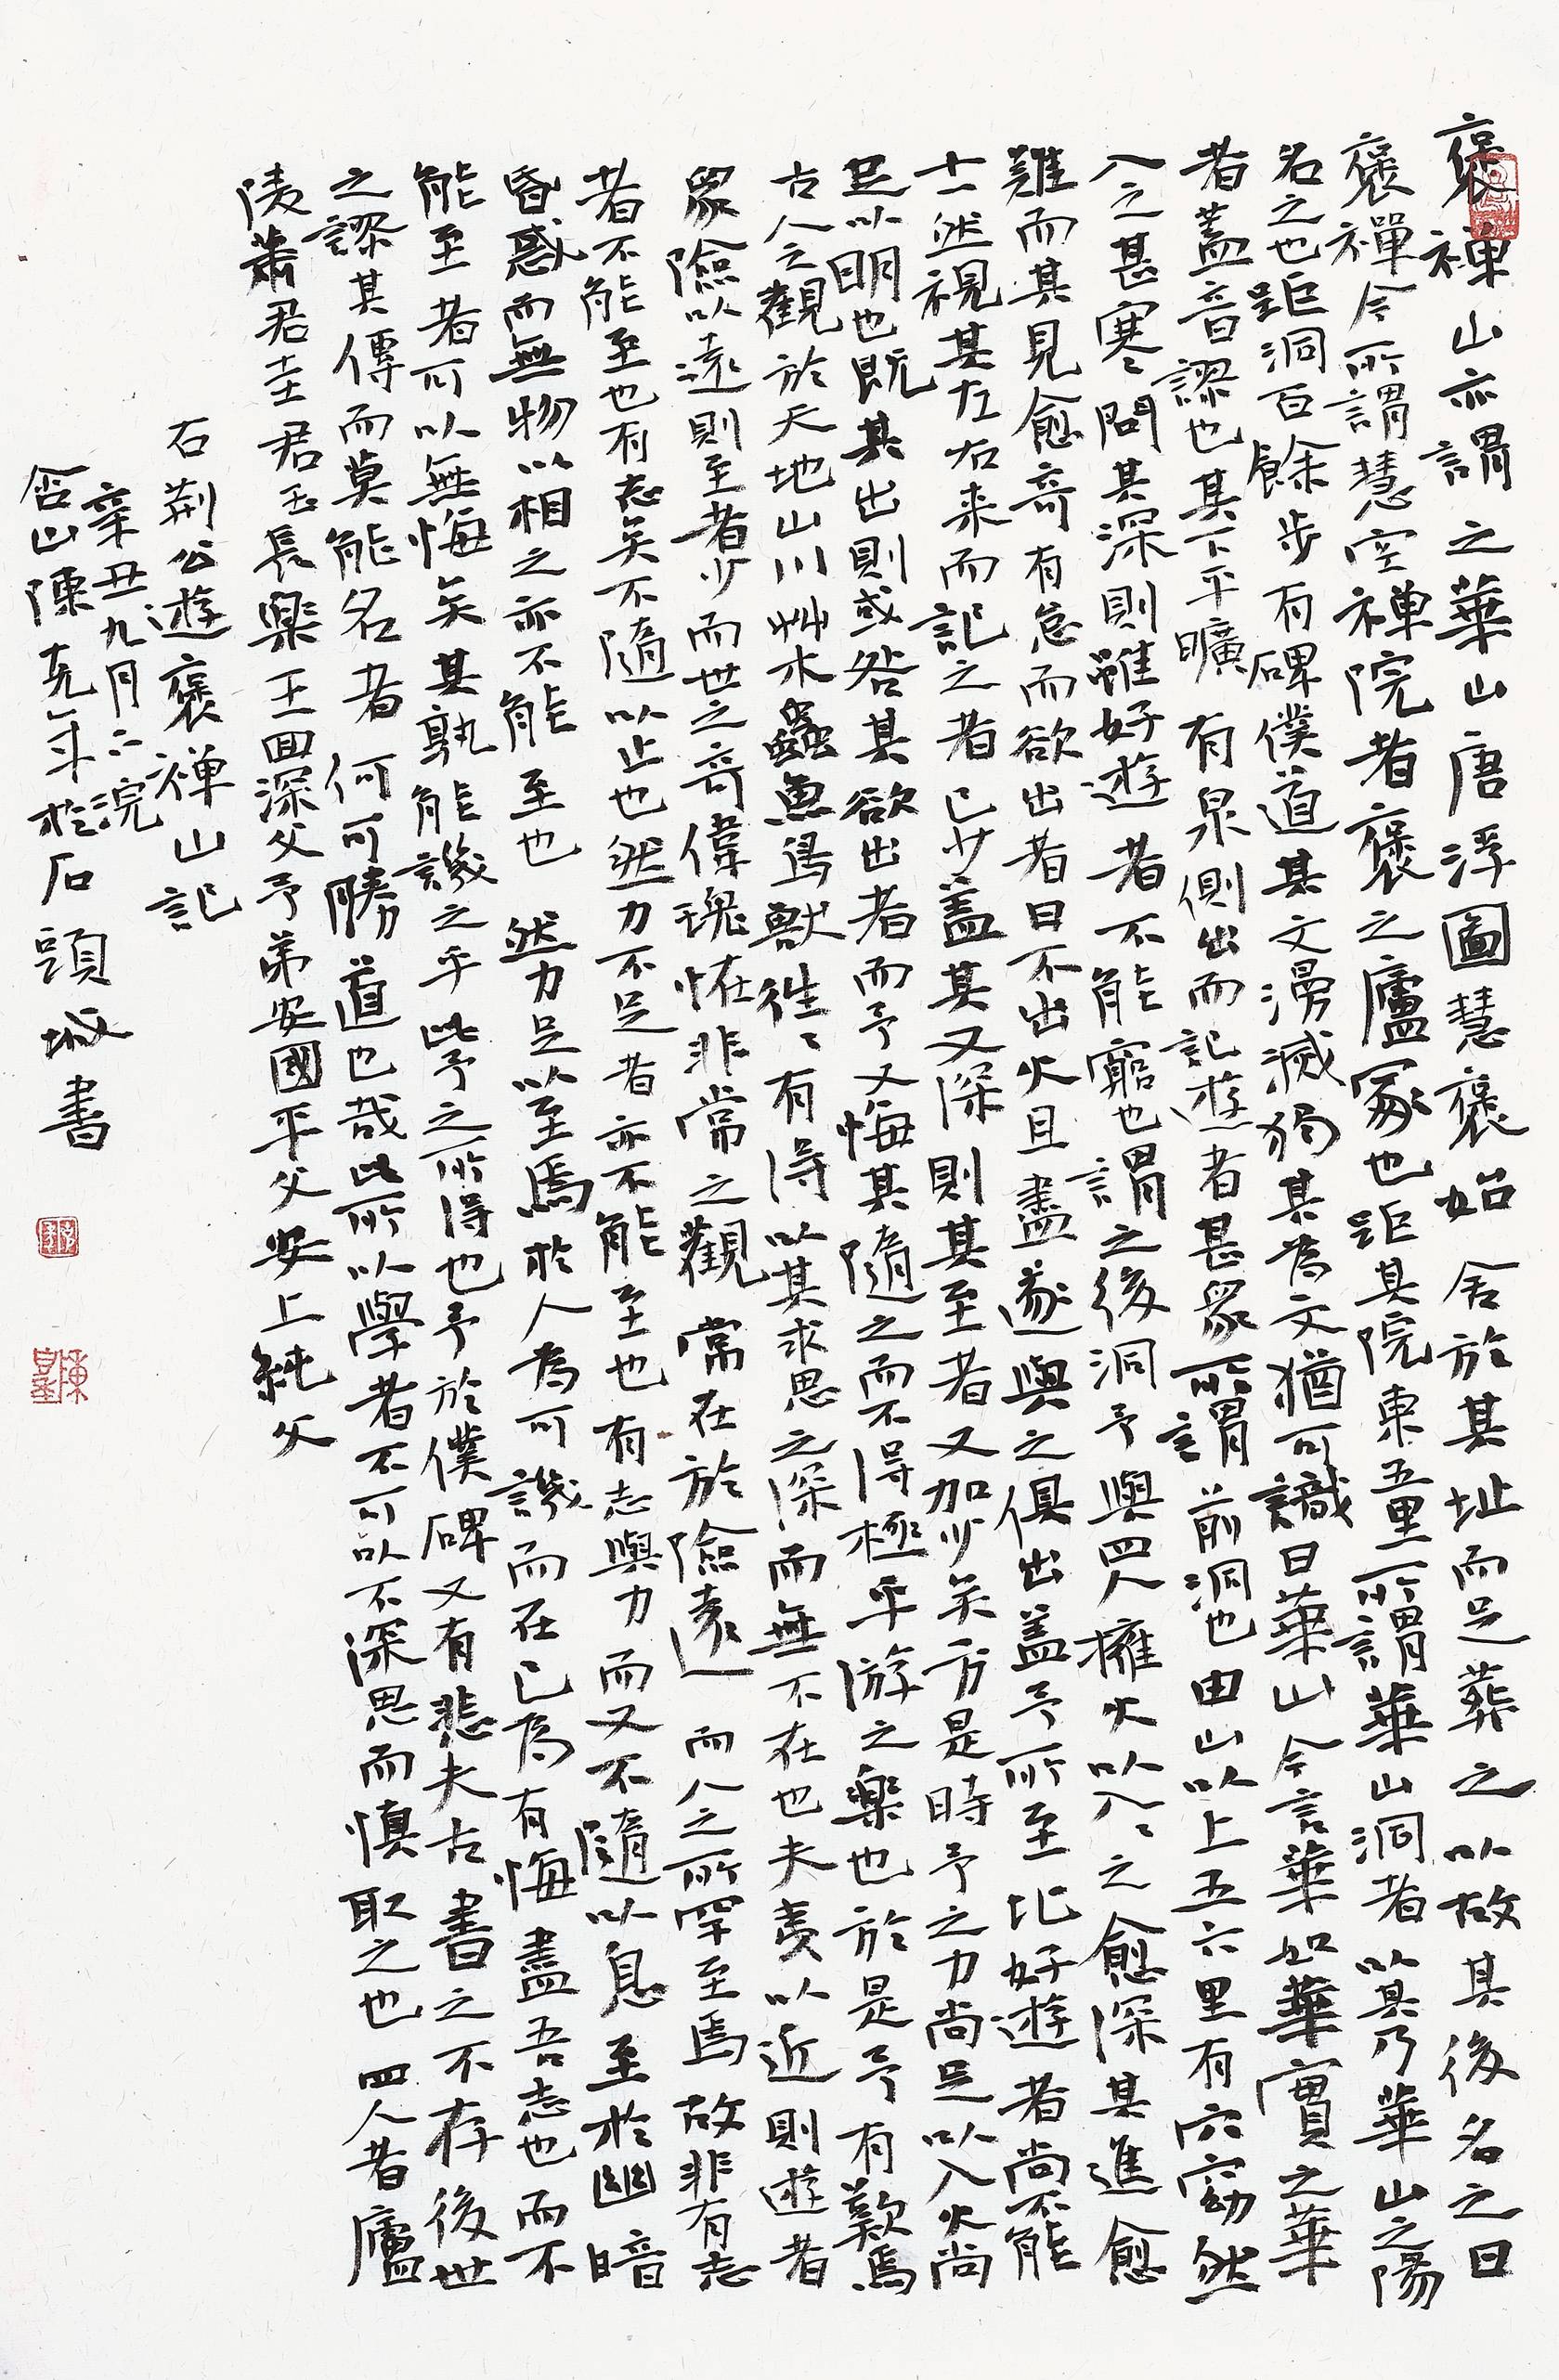 褒禪山亦謂之華山唐浮圖慧褒始舍於其址而足葬之以故其後名之曰
褒禪今所謂慧空禅院者褒之廬冢也距其院東五里所謂華山洞者以其乃華山之陽
名之也距洞百餘步有碑僕道其文漫滅獨其為文猶可識曰華山今言華如華實之華
者蓋音謬也其下平曠有泉側出而記遊者甚眾所謂前洞也由山以上五六里有穴窈然
入之甚寒問其深則雖好遊者不能窮也謂之後洞予與四人擁火以入〻之愈深其進愈
難而其見愈奇有怠而欲出者曰不出火且盡遂與之俱出蓋予所至比好遊者尚不能
十一然視其左右来而記之者已少蓋其又深則其至者又加少矣方是時予之力尚足以入火尚
足以明也既其出則或咎其欲出者而予又悔其隨之而不得極乎游之樂也於是予有歎焉
古人之觀於天地山川艸木蟲魚鳥獸徃〻有得以其求思之深而無不在也夫夷以近則遊者
眾險以遠則至者少而世之奇偉瑰怪非常之觀常在於險遠而人之所罕至焉故非有志
者不能至也有志矣不隨以止也然力不足者亦不能至也有志與力而又不隨以息至於幽暗
昏惑而無物以相之亦不能至也然力足以至焉於人為可譏而在己為有悔盡吾志也而不
能至者可以無悔矣其孰能譏之乎此予之所得也予於僕碑又有悲夫古書之不存後世
之謬其傳而莫能名者何可勝道也哉此所以學者不可以不深思而慎取之也四人者廬
陵蕭君圭君玉長樂王回深父予弟安國平父安上純父
右荆公遊褒禅山記
辛丑九月上浣
含山陳克年於石頭城書